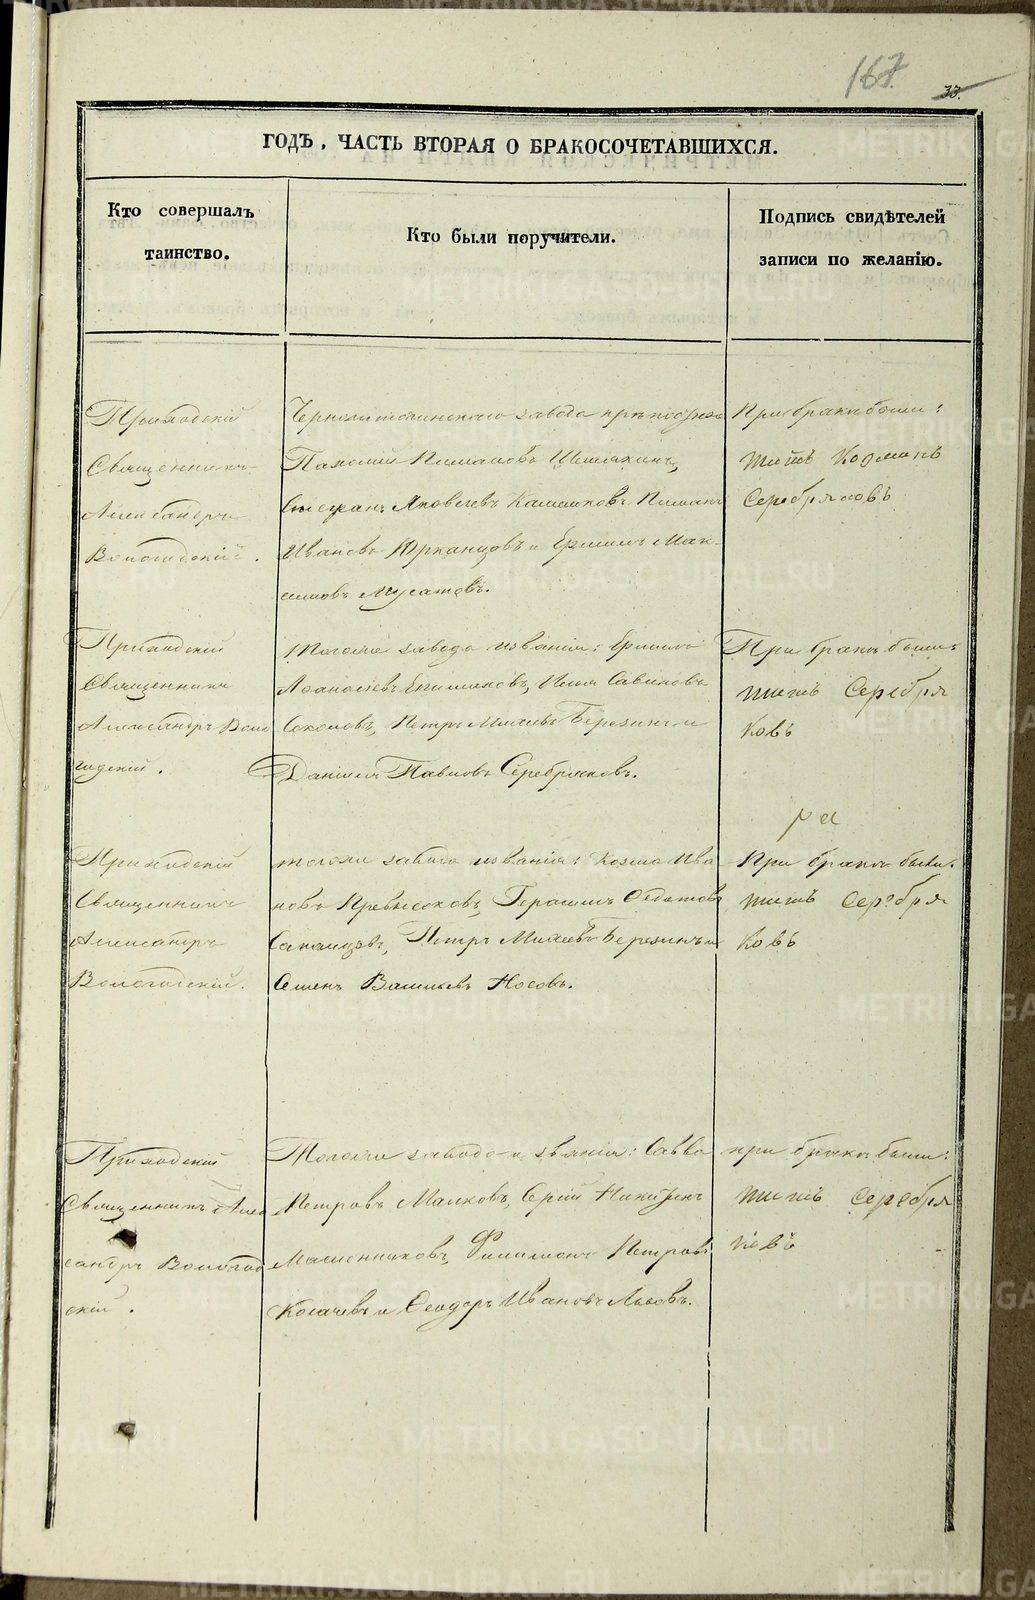 167.
33.
ГОДЪ, ЧАСТЬ ВТОРАЯ О БРАКОСОЧЕТАВШИХСЯ.
Кто совершалъ
таинство.
Кто были поручители.
Подпись свидѣтелей
записи по желанію.
Приходскій
Священникъ
Александръ
Вологодскій.
завода
Пахомій Пимановъ
Яковлевъ Пиманъ
Ивановъ Юрканцовъ и Ермилъ Мак-
симовъ Мусатовъ.
При бракѣ были:
титъ Козманъ
Серебряковъ
Приходскій
Священникъ
Александръ Воло
годскій.
тогоже завода и званія: Ермилъ
Савиновъ
Соколовъ, Петръ Березинъ и
Даніилъ Павловъ Серебряковъ.
При бракѣ были:
титъ Серебря
ковъ
ра
Приходскій
Священникъ
Александръ
Вологодскій.
тогоже завода и званія: Козма Ива
новъ Герасимъ
Петръ Березинъ и
Семенъ Васильевъ Носовъ.
При бракѣ были:
титъ Серебря
ковъ
Приходскій
Священникъ Алек
сандръ Вологод
скій.
Тогоже завода и званія: Савва
Петровъ Малковъ, Никитинъ
Масленниковъ, Филимонъ Петровъ
и Ѳеодоръ Ивановъ Львовъ.
при бракѣ были:
титъ Серебря
ковъ
METRIKI.GASO-URAL.RU